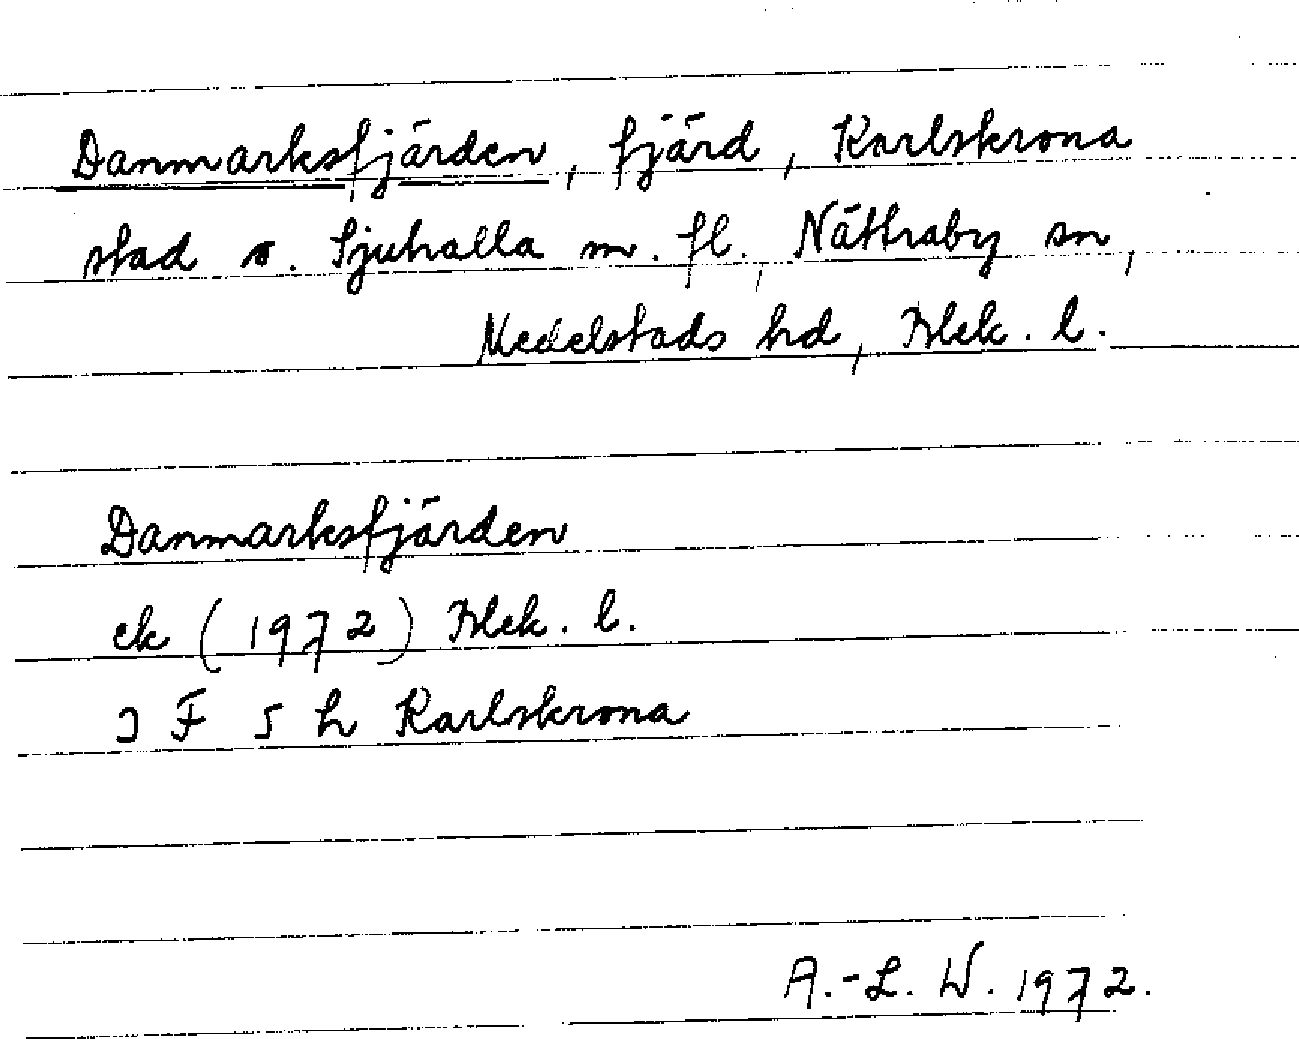 Danmarksfjärden, fjärd, Karlskrona
stad o. Sjuhalla m. fl., Nättraby sn,
Medelstads hd, Blek. l.
Danmarksfjärden
ek (1972) Blek. l.
3 F 5 h Karlskrona
A.-L. W. 1972.